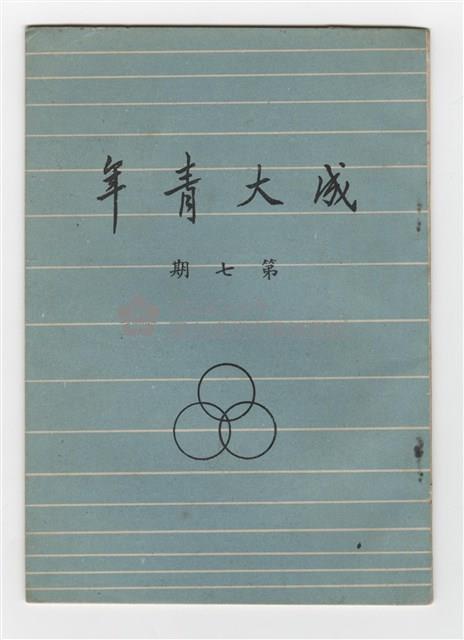 成大青年
第七期